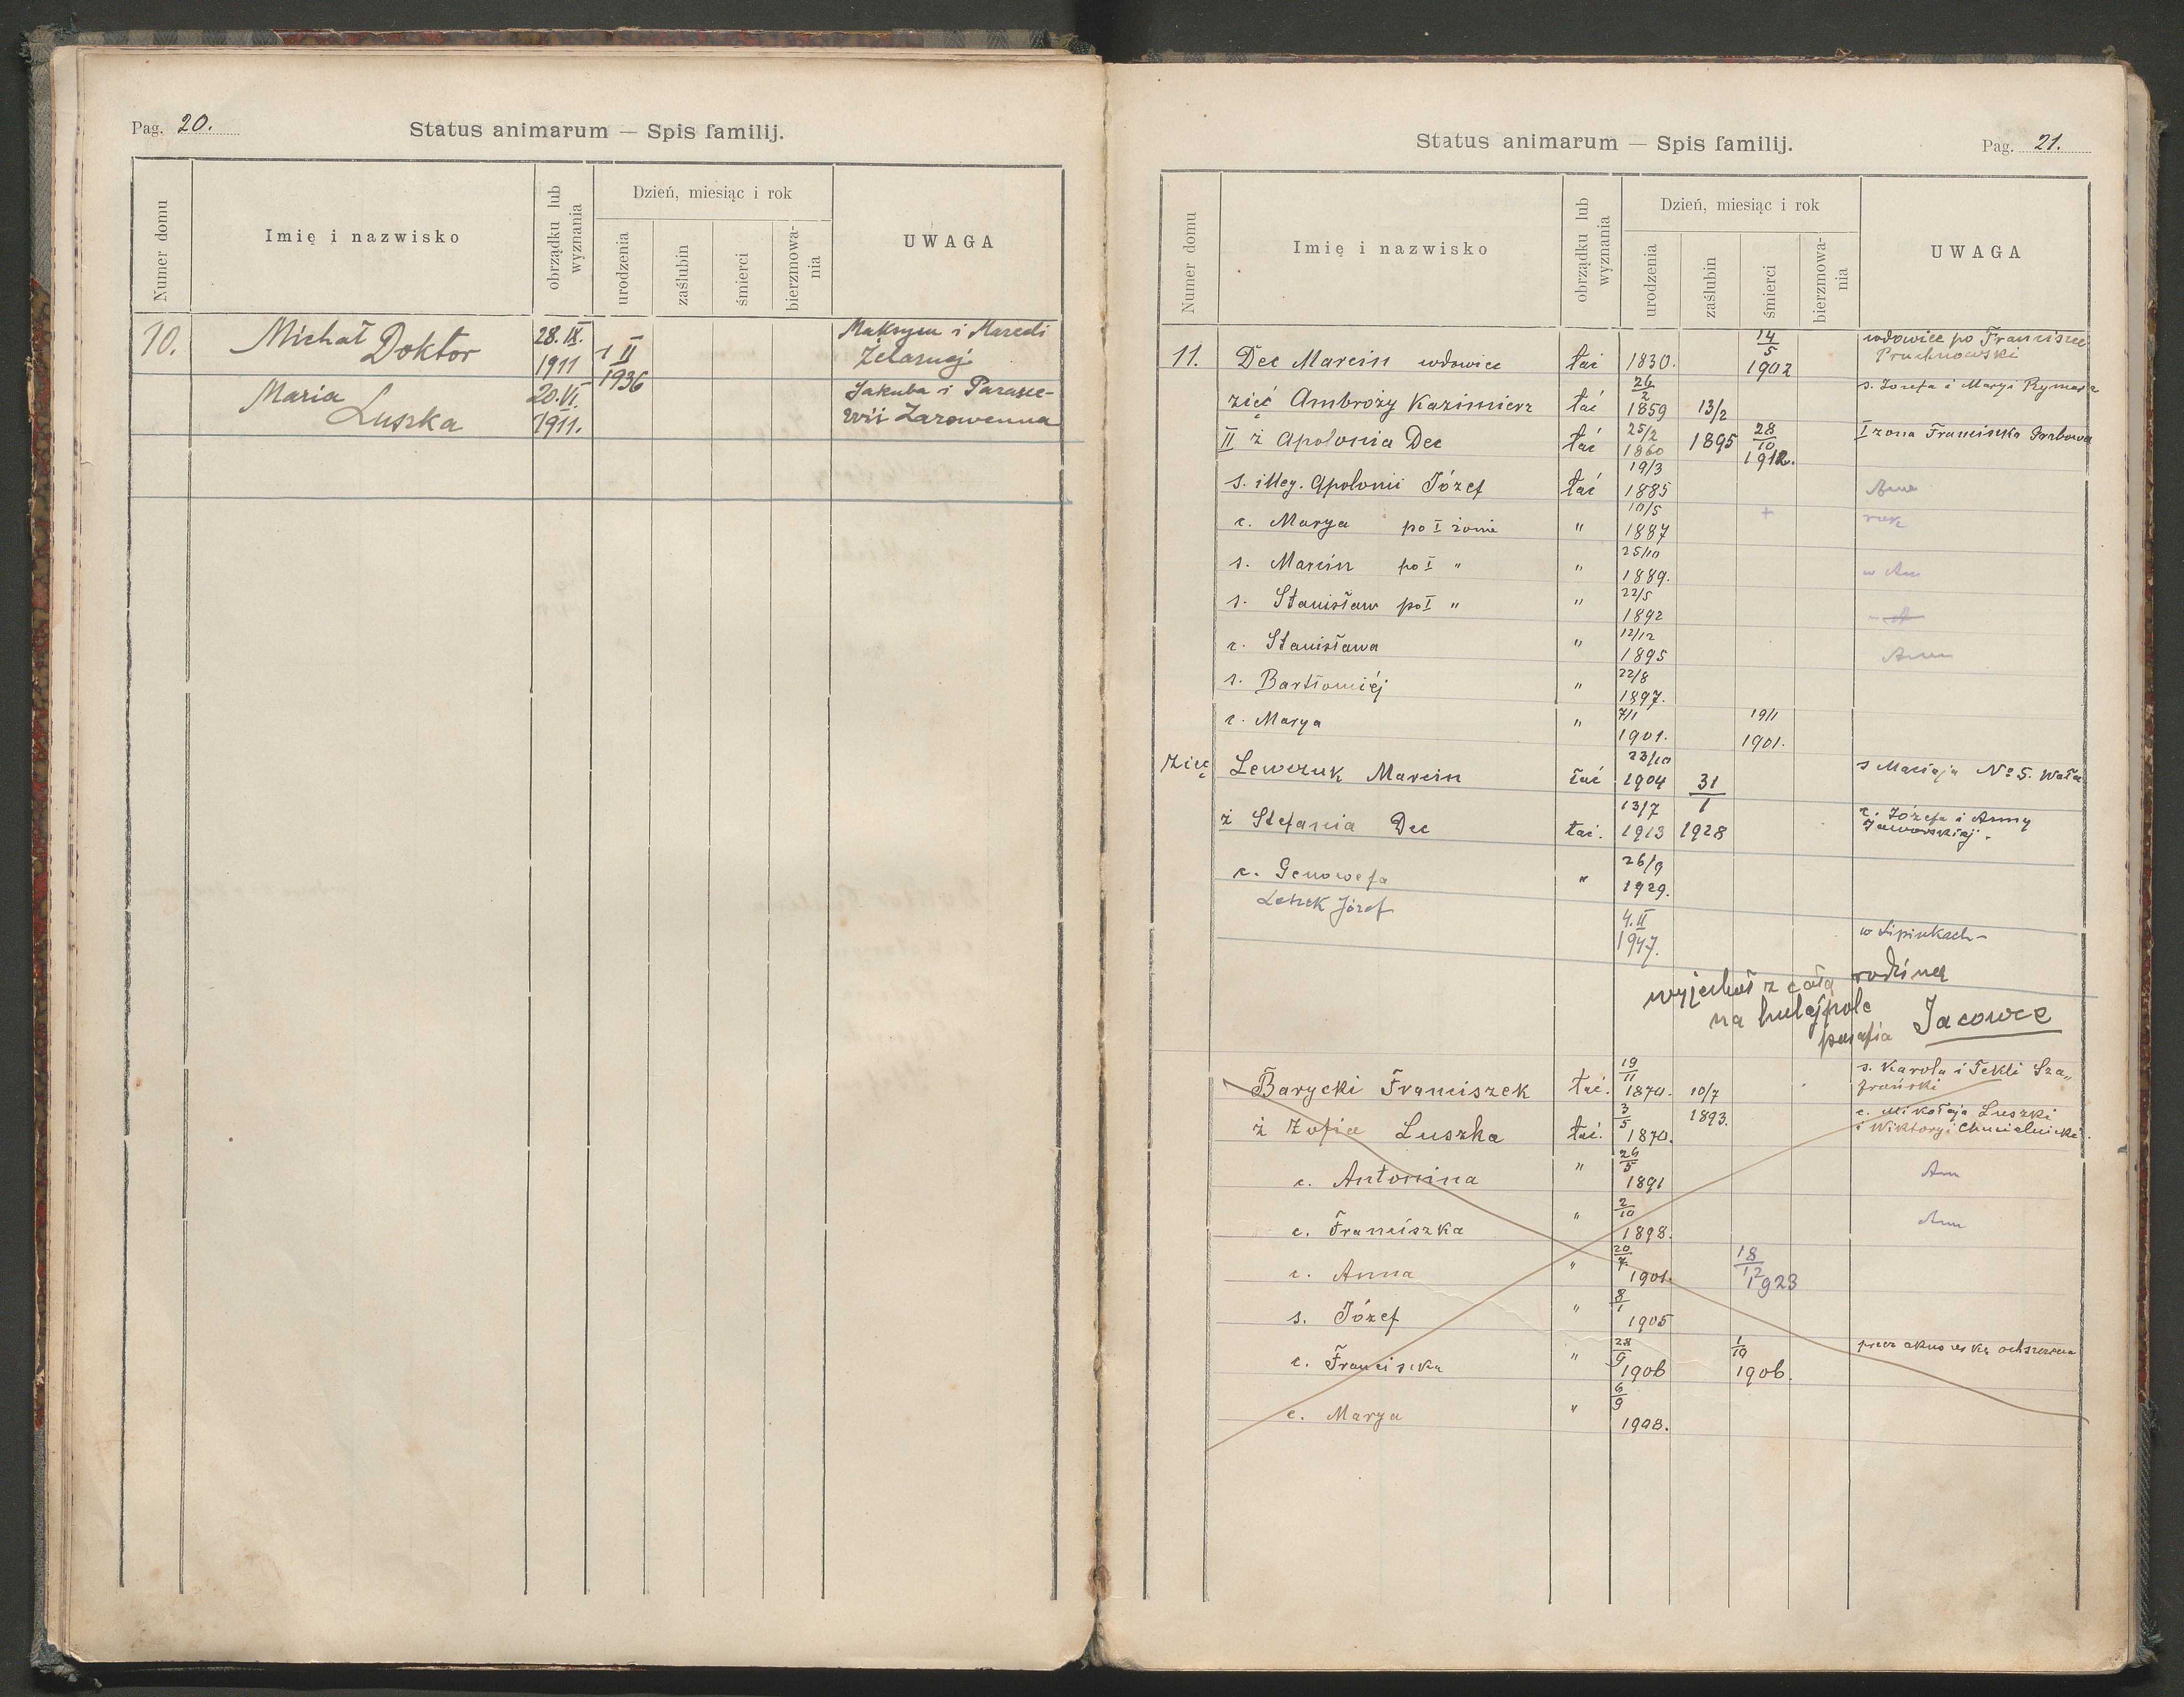 Pag. 20.
Status animarum — Spis familij.
Numer domu
Imię i nazwisko
obrządku lub wyznania
Dzień, miesiąc i rok
urodzenia
zaślubin
śmierci
bierzmowania
UWAGA
10. Michał Doktor 28.IX. 1911 1 II 1936 Maksym i
Żelaznej
Maria Luszka 20.VI. 1911. Jakuba i Parasce-
wii Zarowenna
Status animarum — Spis familij.
Pag. 21.
Numer domu
Imię i nazwisko
obrządku lub wyznania
Dzień, miesiąc i rok
urodzenia
zaślubin
śmierci
bierzmowa-
nia
UWAGA
11. Dec Marcin wdowiec łać 1830. 14/5 1902 wdowiec po Franciszce
Pruchnowski
zięć Ambroży Kazimierz łać 26/2 1859 13/2 s. Józefa i Maryi Rymarz
II ż Apolonia Dec łać 25/2 1860 1895 28/10 1912. I żona Franciszka Grabowa
s. illeg. Apolonii Józef łać 19/3 1885
c. Marya po I żonie " 10/5 1887 +
s. Marcin po I " " 25/10 1889. w Am
s. Stanisław po I " " 22/5 1892
c. Stanisława " 12/12 1895 Am
s. Bartłomiéj " 22/8 1897.
c. Marya " 7/1 1901. 19/1 1901.
zięć Lewczuk Marcin łać 23/10 1904 31/1 s Macieja No 5. Wała
ż Stefania Dec łać. 13/7 1913 1928 c. Józefa i Anny
Jaworskiej.
c. Genowefa " 26/9 1929.
Leszek Józef 4.II 1947. w Lipinkach
wyjechał z całą rodziną
na hulajpole
parafia Jacowce
Barycki Franciszek łać. 19/11 1870. 10/7 s. Karola i Tekli Sza„
frański
ż Zofia Luszka łać. 3/5 1870. 1893. c. Mikołaja Luszki
i Wiktoryi Chmielnicki.
c. Antonina " 26/5 1891 Am
c. Franciszka " 2/10 1898. Am
c. Anna " 20/7 1901. 18/12 1923
s. Józef " 8/1 1905
c. Franciszka " 28/9 1906 1/10 1906. przez akuszerkę ochrzczona
c. Marya " 6/9 1908.